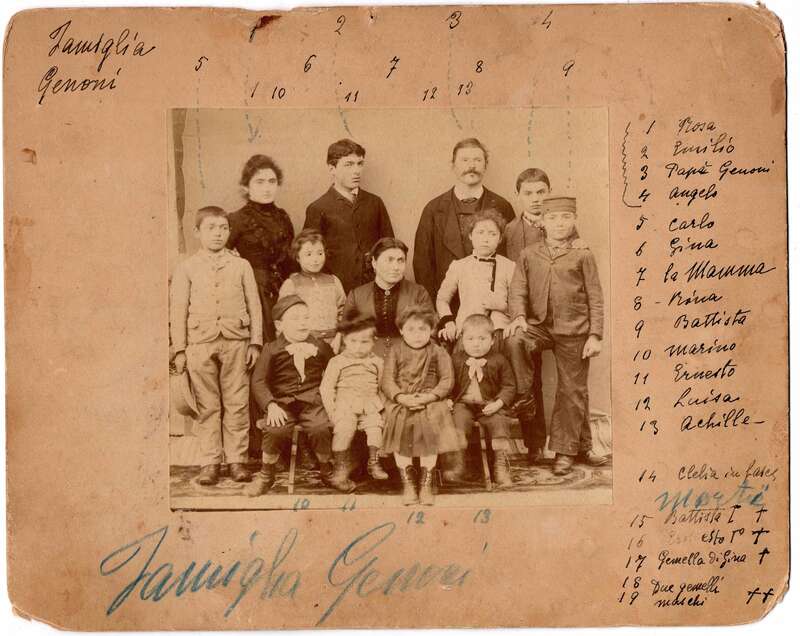 Famiglia
Genoni
1 2 3 4
5 6 7 8 9
1 10 11 12 13
1 Rosa
2 Emilio
3 Papà Genoni
4 Angelo
5 Carlo
6 Gina
7 la Mamma
8 -
9 Battista
10 Marino
11 Ernesto
12 Luisa
13 Achille -
14 Clelia in fasce
morti
15 Battista I †
16 Ernesto 1° †
17 Gemella di Gina †
18 Due gemelli
19 maschi ††
10 11 12 13
Famiglia Genoni